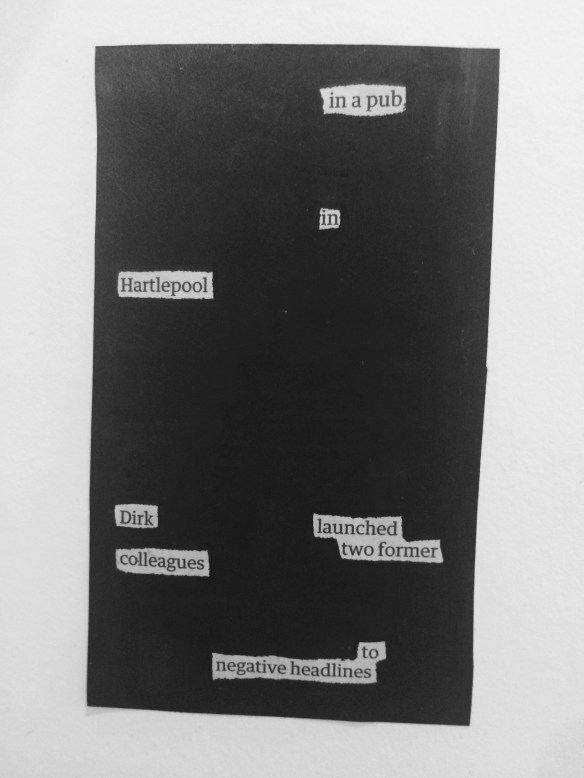 in a pub,
in
Hartlepool
Dirk launched
two former
colleagues
to
negative headlines